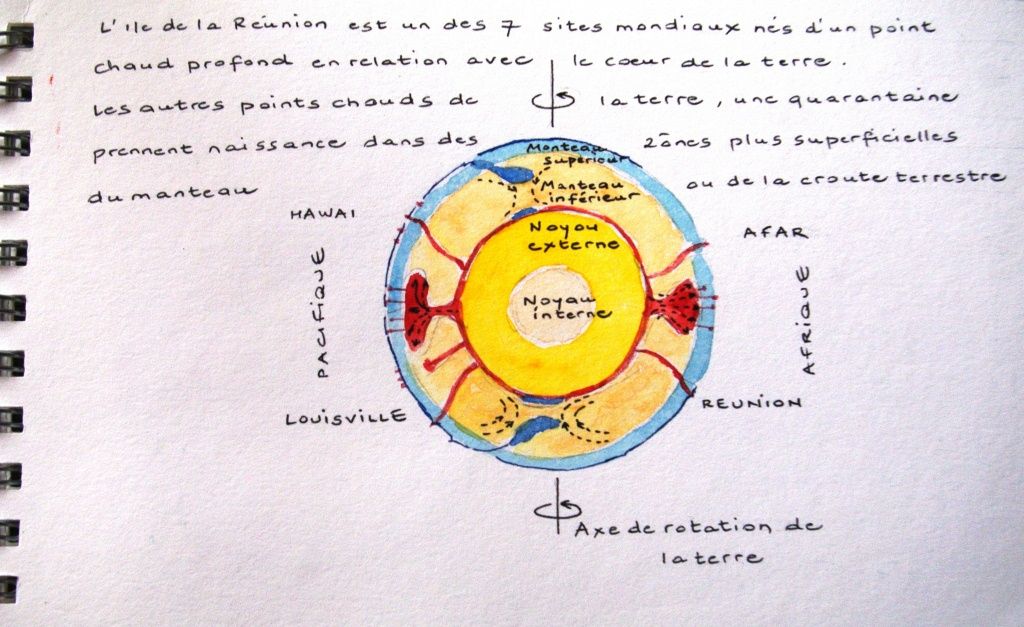 L'île de la Réunion est un des 7 sites mondiaux nés d'un point
chaud profond en relation avec le coeur de la terre.
Les autres points chauds de la terre, une quarantaine
prennent naissance dans des zônes plus superficielles
du manteau ou de la croute terrestre
Manteau
supérieur
Manteau
inférieur
HAWAI
Noyau
externe
AFAR
PACIFIQUE
Noyau
interne
AFRIQUE
LOUISVILLE
REUNION
Axe de rotation de
la terre